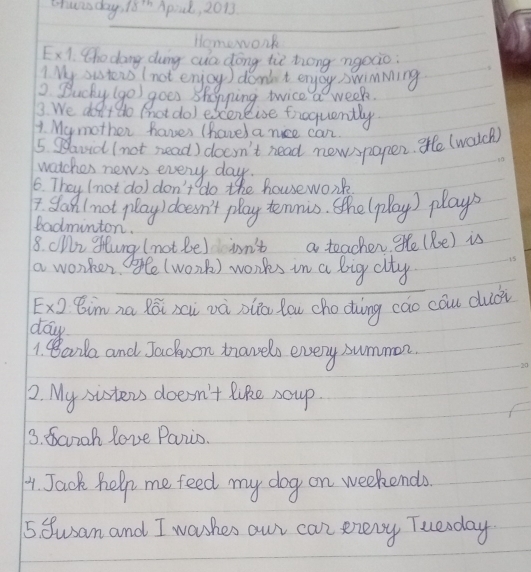 Thursday, 18th April, 2013
Homework
Ex1. Cho dạng đúng của động từ trong ngoặc:
1. My sisters (not enjoy) don't enjoy swimming
2. Bucky (go) goes shopping twice a week.
3. We don't do (not do) exercise frequently
4. My mother haves (have) a nice car.
5. David (not read) doesn't read newspaper. He (watch)
watches news every day.
6. They (not do) don't do the housework.
7. Lan (not play) doesn't play tennis. She (play) plays
badminton.
8. Mr Hung (not be) isn't a teacher. He (be) is
a worker. He (work) works in a big city.
Ex2. Tìm ra lỗi sai và sửa lại cho đúng các câu dưới
đây
1. Barla and Jackson travels every summer.
2. My sisters doesn't like soup.
3. Sarah love Paris.
4. Jack help me feed my dog on weekends.
5. Susan and I washes our car every Tuesday